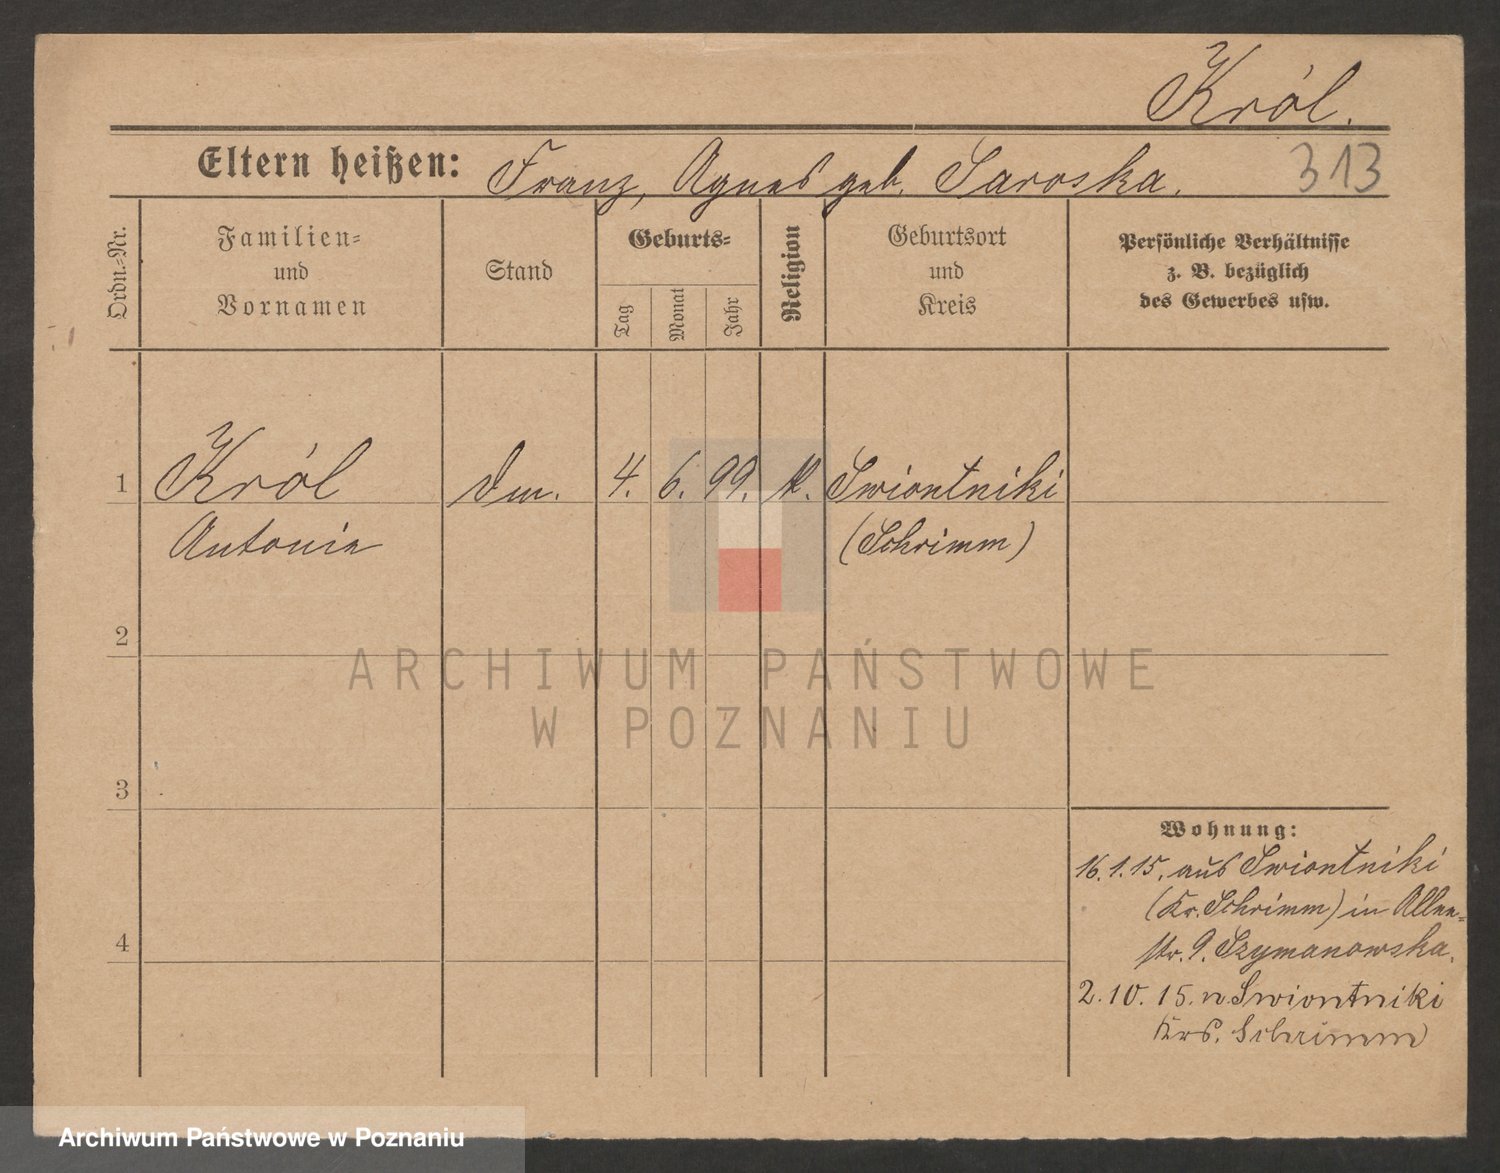 Król.
Eltern heißen: Franz, Agnes geb. Saroska.
313
Ordn.-Nr.
Familien-
und
Vornamen
Stand
Geburts-
Tag
Monat
Jahr
Religion
Geburtsort
und
Kreis
Persönliche Verhältnisse
z. B. bezüglich
des Gewerbes usw.
1 Król 4. 6. 99. k. Swiontniki
Antonie (Schrimm)
2
ARCHIWUM PAŃSTWOWE
W POZNANIU
3
Wohnung:
16.1.15. aus Swiontniki
(Kr. Schrimm) in Allee-
str. 9. Szymanowska.
4
2.10.15. n. Swiontniki
Krs. Schrimm
Archiwum Państwowe w Poznaniu